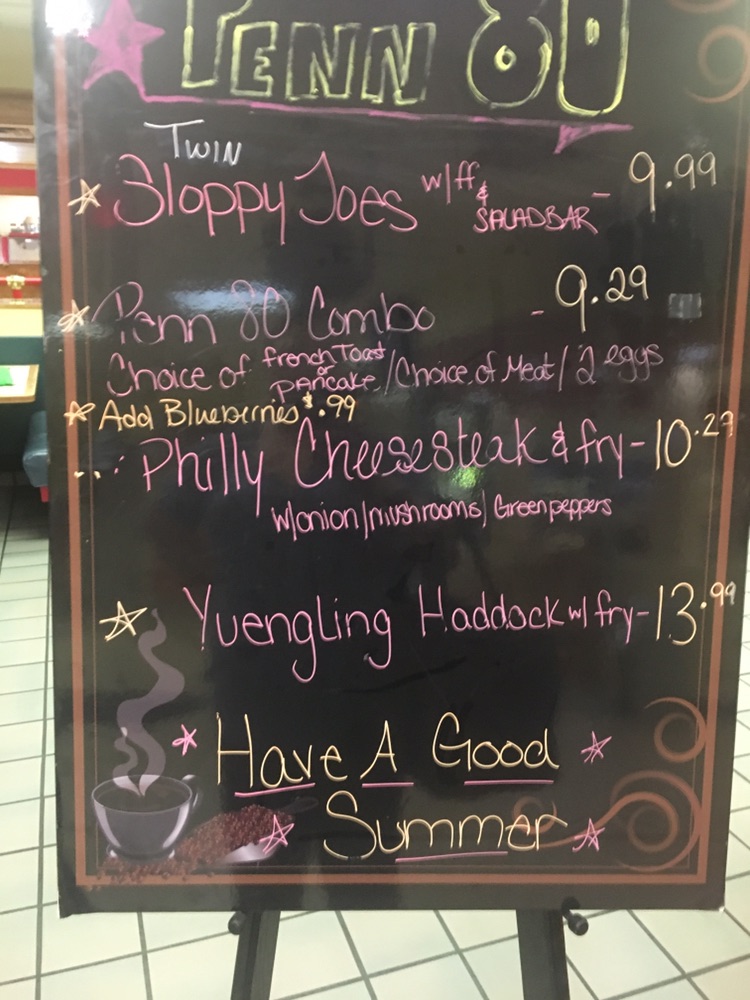 PENN 80
TWIN
Sloppy Joes w/ff & SALAD BAR - 9.99
Penn 80 Combo - 9.29
Choice of french Toast or PANCAKE / Choice of Meat / 2 eggs
Add Blueberries $.99
Philly Cheesesteak & fry - 10.29
w/onion/mushrooms/Greenpeppers
Yuengling Haddock w/ fry - 13.99
Have A Good
Summer